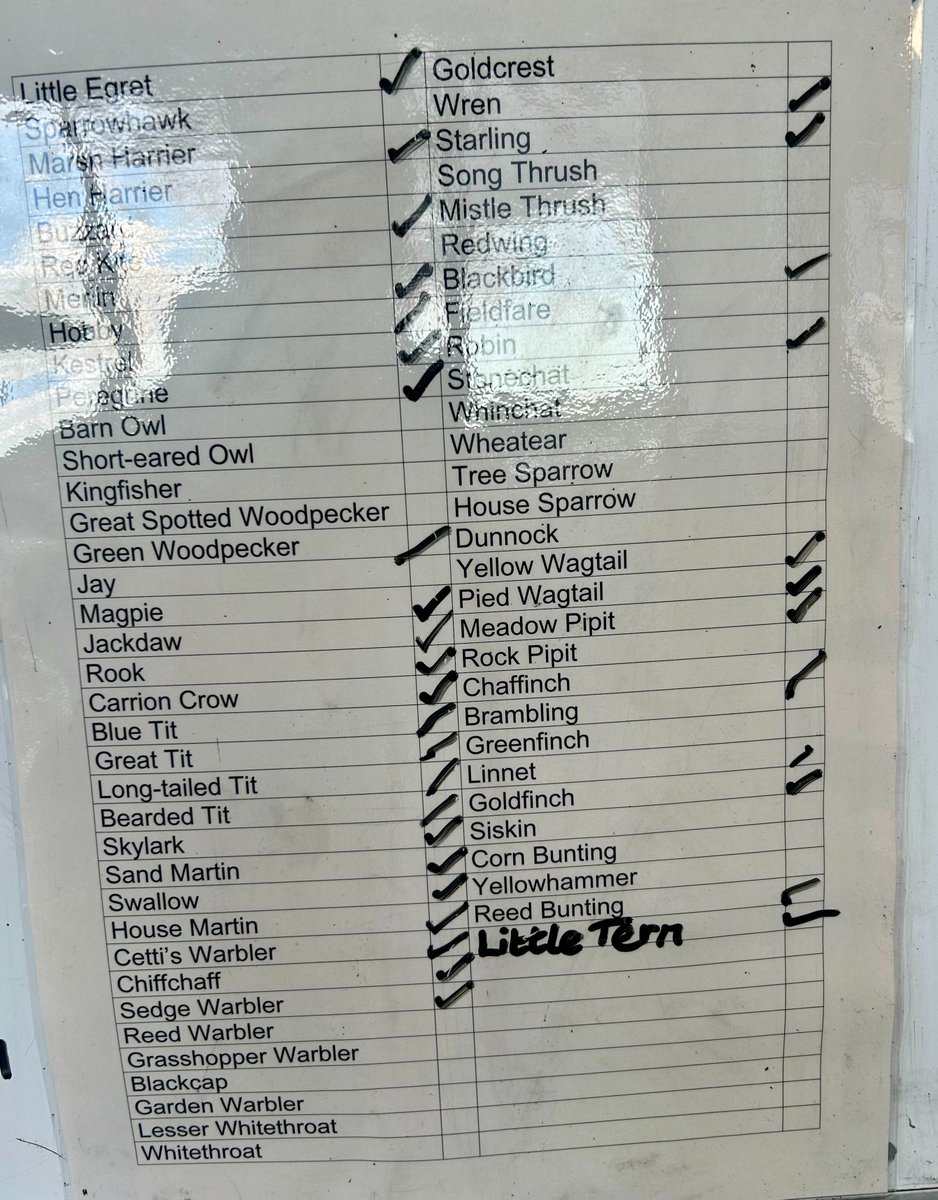 Little Egret
Sparrowhawk
Marsh Harrier
Hen Harrier
Buzzard
Red Kite
Merlin
Hobby
Kestrel
Peregrine
Barn Owl
Short-eared Owl
Kingfisher
Great Spotted Woodpecker
Green Woodpecker
Jay
Magpie
Jackdaw
Rook
Carrion Crow
Blue Tit
Great Tit
Long-tailed Tit
Bearded Tit
Skylark
Sand Martin
Swallow
House Martin
Cetti's Warbler
Chiffchaff
Sedge Warbler
Reed Warbler
Grasshopper Warbler
Blackcap
Garden Warbler
Lesser Whitethroat
Whitethroat
Goldcrest
Wren
Starling
Song Thrush
Mistle Thrush
Redwing
Blackbird
Fieldfare
Robin
Stonechat
Whinchat
Wheatear
Tree Sparrow
House Sparrow
Dunnock
Yellow Wagtail
Pied Wagtail
Meadow Pipit
Rock Pipit
Chaffinch
Brambling
Greenfinch
Linnet
Goldfinch
Siskin
Corn Bunting
Yellowhammer
Reed Bunting
Little Tern